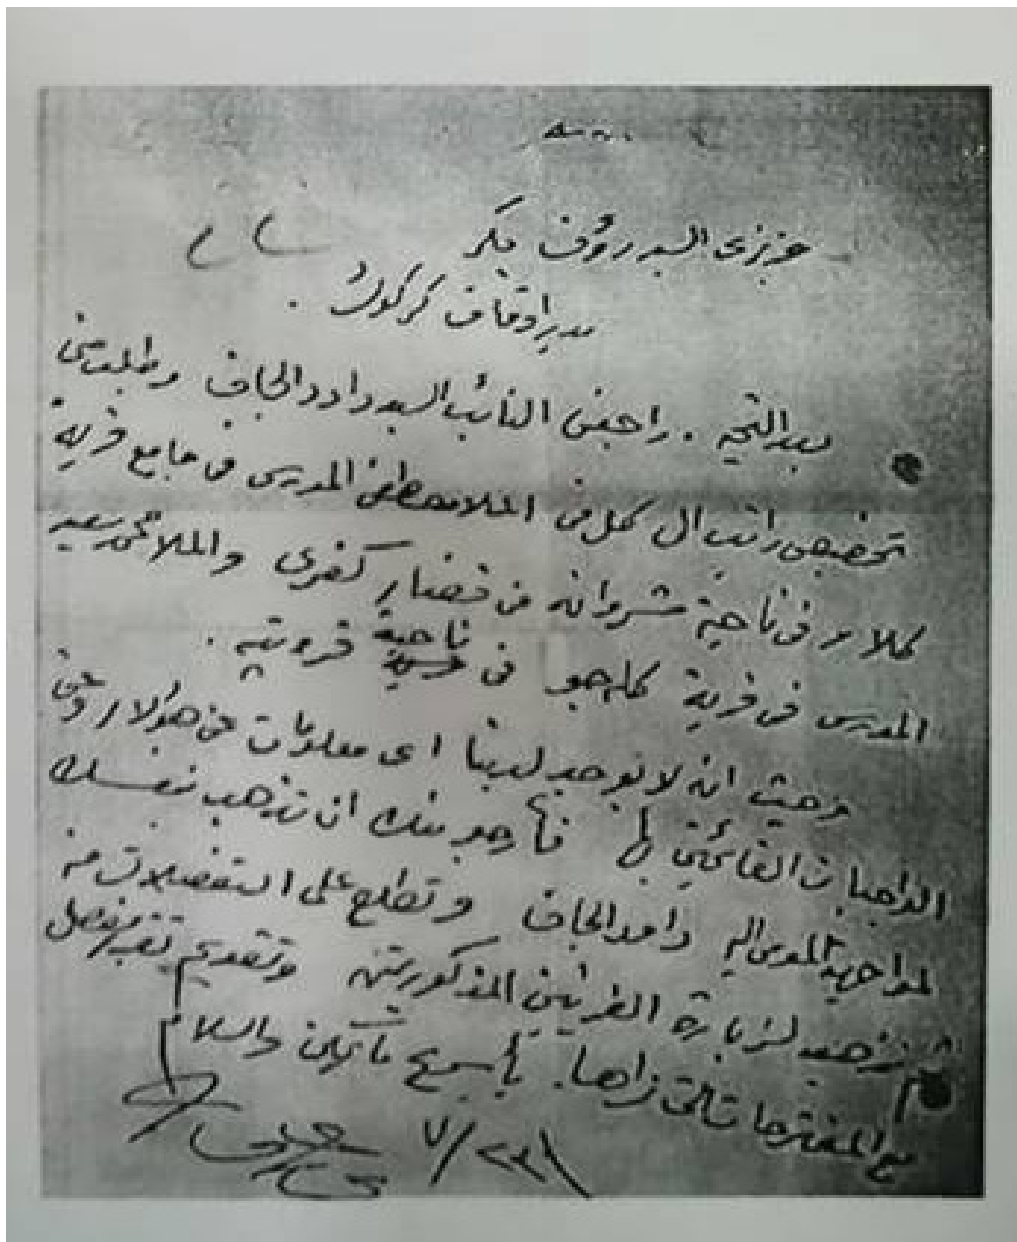 عزيزى السيد رؤوف بكر
مدير اوقاف كركوك .
بعد التحية . راجعنى النائب السيد داود الجاف وطلب منى
تخصيص راتب الى كل من الملا مصطفى المدرس فى جامع قرية
كلار فى ناحية شروانه من قضاء كفرى والملا محمد سعيد
المدرس فى قرية فى ناحية قره تپه .
وحيث انه لا يوجد لدينا اى معلومات عن هؤلاء وعن
الواجبات القائمين بها فأرجو منك ان تذهب بنفسك
لمواجهة المومى اليه داود الجاف وتطلع على التفصيلات منه
ثم تذهب لزيارة القريتين المذكورتين وتقديم تقرير مفصل
مع المقترحات التى تراها. بأسرع ما يمكن والسلام
٧/٢٣